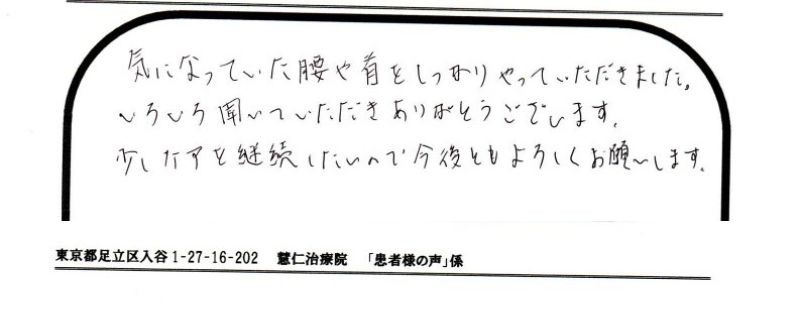 気になっていた腰や首をしっかりやっていただきました。
いろいろ聞いていただきありがとうございます。
少しケアを継続したいので今後ともよろしくお願いします。
東京都足立区入谷1-27-16-202 慧仁治療院 「患者様の声」係